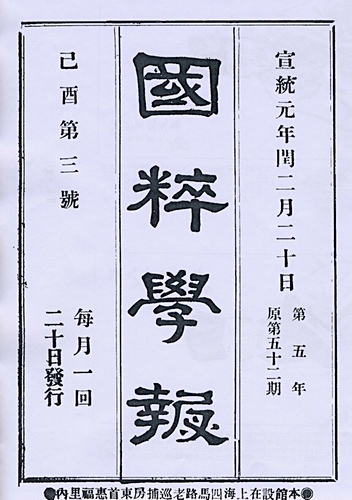 宣統元年閏二月二十日
第五年
原第五十二期
國粹學報
己酉第三號
每月一回
二十日發行
本館設在上海四馬路老巡捕房東首惠福里內